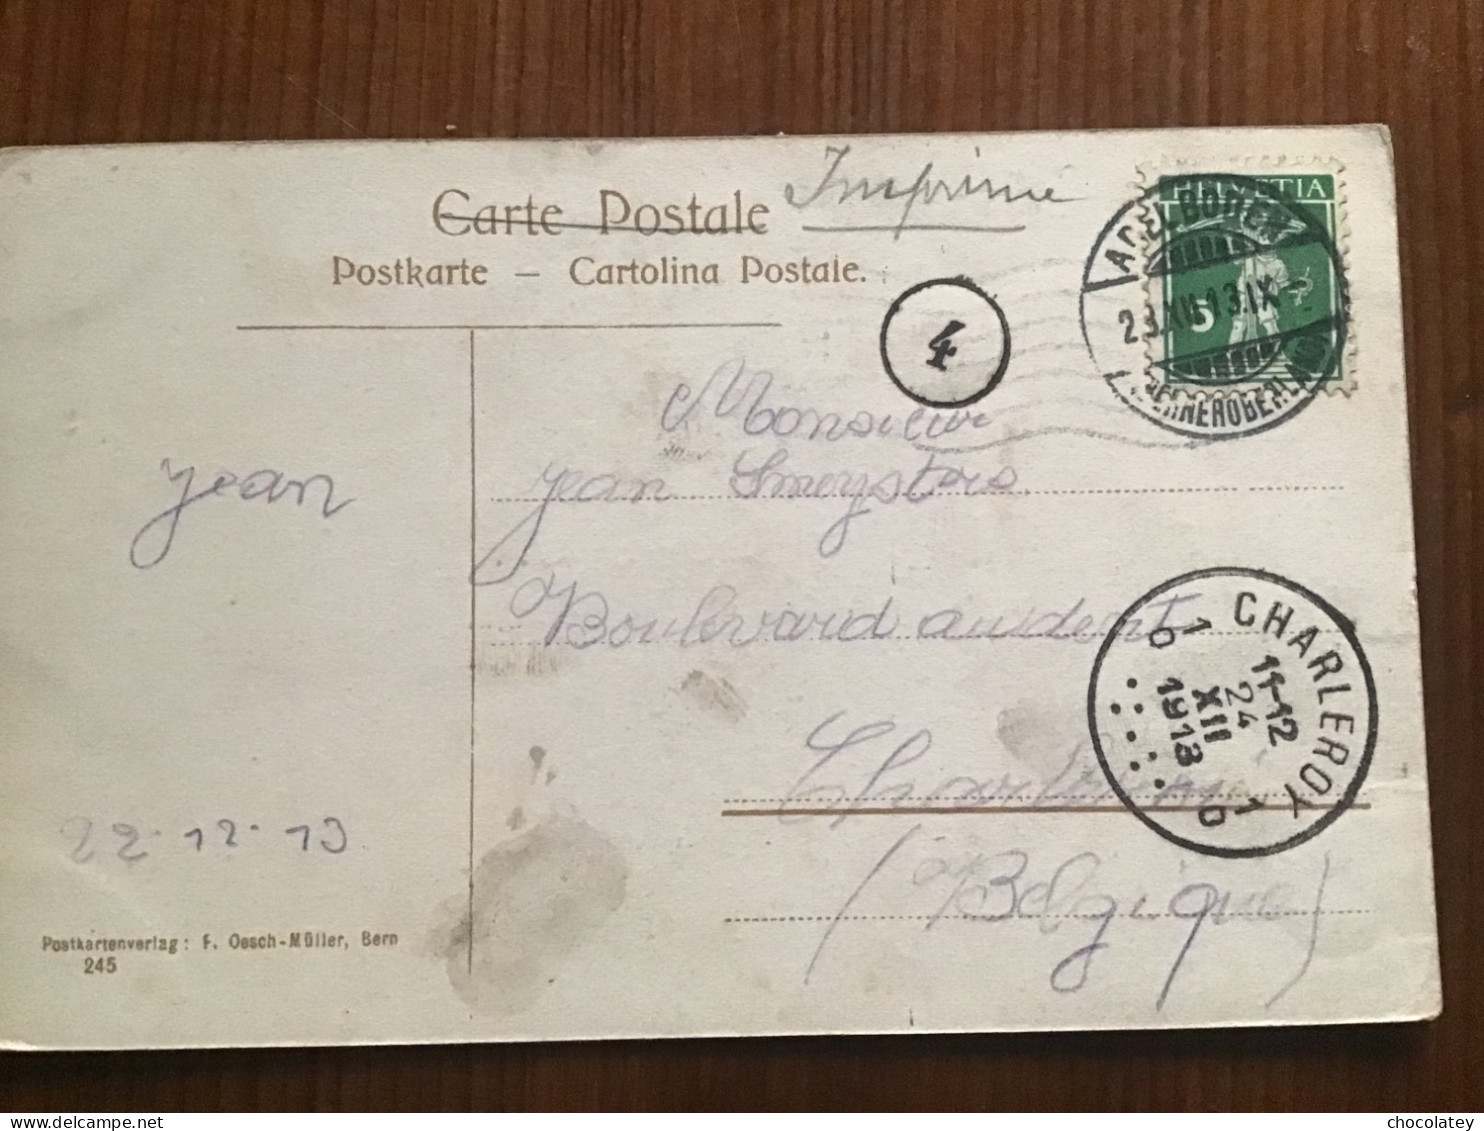 Carte Postale Imprimé
Postkarte – Cartolina Postale.
HELVETIA
5
ADELBODEN
23.XII.13.IX
(BERNEROBERLAND)
4
Monsieur
Jean Smeysters
Boulevard audent
Charleroy
(Belgique)
Jean
22·12·13
CHARLEROY
1 1
11-12
24
XII
1913
Postkartenverlag: F. Oesch-Müller, Bern
245
chocolatey